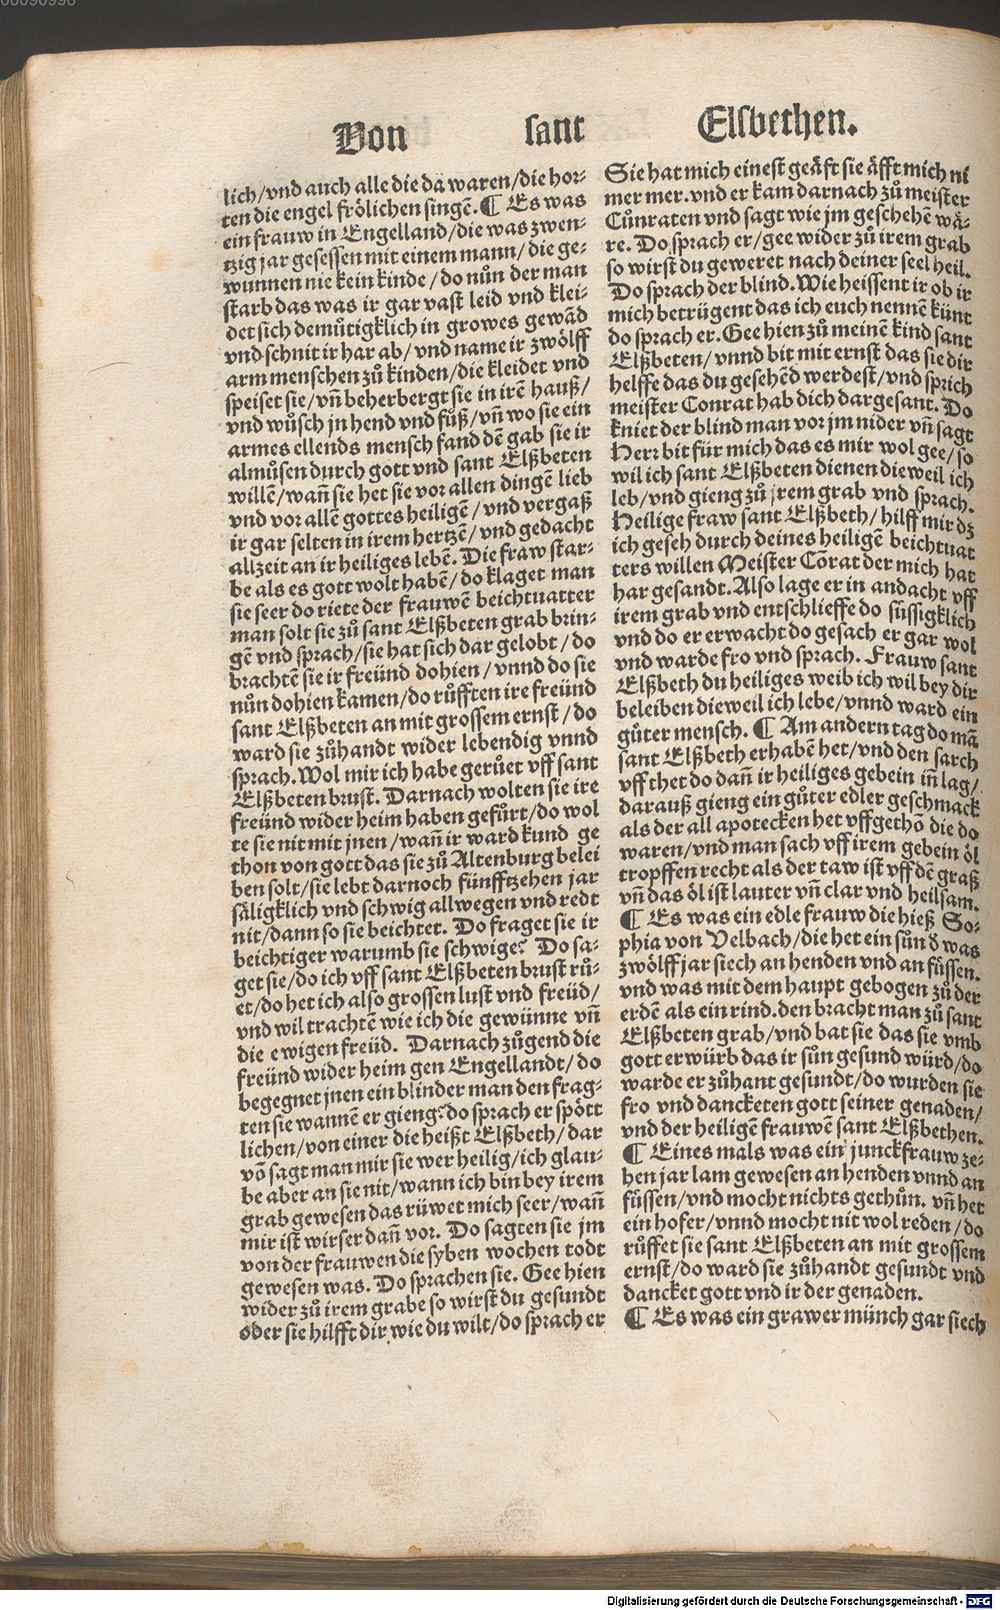 00090998
Von sant Elsbethen.
lich/vnd auch alle die da waren/die hor-
ten die engel frölichen singẽ. ¶ Es was
ein frauw in Engelland/die was zwen-
tzig jar gesessen mit einem mann/die ge-
wunnen nie kein kinde/do nůn der man
starb das was ir gar vast leid vnd klei-
det sich demůtigklich in growes gewãd
vnd schnit ir har ab/vnd name ir zwölff
arm menschen zů kinden/die kleidet vnd
speiset sie/vñ beherbergt sie in irẽ hauß/
vnd wůsch jn hend vnd fůß/vñ wo sie ein
armes ellends mensch fand dẽ gab sie ir
almůsen durch gott vnd sant Elßbeten
willẽ/wañ sie het sie vor allen dingẽ lieb
vnd vor allẽ gottes heiligẽ/vnd vergaß
ir gar selten in irem hertzẽ/vnd gedacht
allzeit an ir heiliges lebẽ. Die fraw star-
be als es gott wolt habẽ/do klaget man
sie seer do riete der frauwẽ beichtuatter
man solt sie zů sant Elßbeten grab brin-
gẽ vnd sprach/sie hat sich dar gelobt/do
brachtẽ sie ir freünd dohien/vnnd do sie
nůn dohien kamen/do růfften ire freünd
sant Elßbeten an mit grossem ernst/do
ward sie zůhandt wider lebendig vnnd
sprach. Wol mir ich habe gerůet vff sant
Elßbeten brust. Darnach wolten sie ire
freünd wider heim haben gefůrt/do wol
te sie nit mit jnen/wañ ir ward kund ge
thon von gott das sie zů Altenburg belei
ben solt/sie lebt darnoch fünfftzehen jar
säligklich vnd schwig allwegen vnd redt
nit/dann so sie beichtet. Do fraget sie ir
beichtiger warumb sie schwige? Do sa-
get sie/do ich vff sant Elßbeten brust rů-
et/do het ich also grossen lust vnd freüd/
vnd wil trachtẽ wie ich die gewünne vñ
die ewigen freüd. Darnach zůgend die
freünd wider heim gen Engellandt/do
begegnet jnen ein blinder man den frag-
ten sie wannẽ er gieng? do sprach er spött
lichen/von einer die heißt Elßbeth/dar
võ sagt man mir sie wer heilig/ich glau-
be aber an sie nit/wann ich bin bey irem
grab gewesen das rüwet mich seer/wañ
mir ist wirser dañ vor. Do sagten sie jm
von der frauwen die syben wochen todt
gewesen was. Do sprachen sie. Gee hien
wider zů irem grabe so wirst du gesundt
oder sie hilfft dir wie du wilt/do sprach er
Sie hat mich einest geäfft sie äfft mich ni
mer mer. vnd er kam darnach zů meister
Cůnraten vnd sagt wie jm geschehẽ wä-
re. Do sprach er/gee wider zů irem grab
so wirst du geweret nach deiner seel heil.
Do sprach der blind. Wie heissent ir ob ir
mich betrügent das ich euch nennẽ künt
do sprach er. Gee hien zů meinẽ kind sant
Elßbeten/vnnd bit mit ernst das sie dir
helffe das du gesehẽd werdest/vnd sprich
meister Conrat hab dich dargesant. Do
kniet der blind man vor jm nider vñ sagt
Herr bit für mich das es mir wol gee/so
wil ich sant Elßbeten dienen dieweil ich
leb/vnd gieng zů jrem grab vnd sprach.
Heilige fraw sant Elßbeth/hilff mir dz
ich geseh durch deines heiligẽ beichtuat
ters willen Meister Cõrat der mich hat
har gesandt. Also lage er in andacht vff
irem grab vnd entschlieffe do süssigklich
vnd do er erwacht do gesach er gar wol
vnd warde fro vnd sprach. Frauw sant
Elßbeth du heiliges weib ich wil bey dir
beleiben dieweil ich lebe/vnnd ward ein
gůter mensch. ¶ Am andern tag do mã
sant Elßbeth erhabẽ het/vnd den sarch
vff thet do dañ ir heiliges gebein iñ lag/
darauß gieng ein gůter edler geschmack
als der all apotecken het vffgethõ die do
waren/vnd man sach vff irem gebein öl
tropffen recht als der taw ist vff dẽ graß
vñ das öl ist lauter vñ clar vnd heilsam.
¶ Es was ein edle frauw die hieß So-
phia von Velbach/die het ein sůn d̕ was
zwölff jar siech an henden vnd an füssen.
vnd was mit dem haupt gebogen zů der
erdẽ als ein rind. den bracht man zů sant
Elßbeten grab/vnd bat sie das sie vmb
gott erwürb das ir sůn gesund würd/do
warde er zůhant gesundt/do wurden sie
fro vnd dancketen gott seiner genaden/
vnd der heiligẽ frauwẽ sant Elßbethen.
¶ Eines mals was ein junckfrauw ze-
hen jar lam gewesen an henden vnnd an
füssen/vnd mocht nichts gethůn. vñ het
ein hofer/vnnd mocht nit wol reden/do
růffet sie sant Elßbeten an mit grossem
ernst/do ward sie zůhandt gesundt vnd
dancket gott vnd ir der genaden.
¶ Es was ein grawer münch gar siech
Digitalisierung gefördert durch die Deutsche Forschungsgemeinschaft - DFG